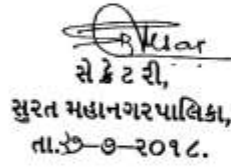 સેક્રેટરી,
સુરત મહાનગરપાલિકા,
તા.૨૭-૭-૨૦૧૮.